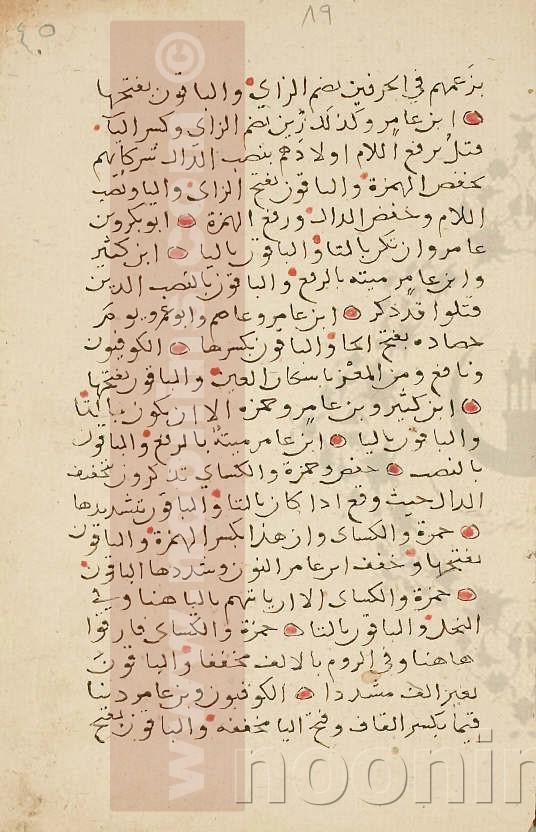 ٨٩
٤٠
بزعمهم في الحرفين بضم الزاي والباقون بفتحها
ابن عامر وكذلك زين بضم الزاي وكسر اليا
قتل برفع اللام اولادهم بنصب الدال شركايهم
بخفض الهمزة والباقون بفتح الزاي والياء ونصب
اللام وخفض الدال ورفع الهمزة ابو بكر وبن
عامر وان تكن بالتا والباقون باليا ابن كثير
وابن عامر ميته بالرفع والباقون بالنصب الذين
قتلوا قد ذكر ابن عامر وعاصم وابو عمرو يوم
حصاده بفتح الحا والباقون بكسرها الكوفيون
ونافع ومن المعز باسكان العين والباقون بفتحها
ابن كثير وبن عامر وحمزه الا ان تكون بالتا
والباقون باليا ابن عامر ميتة بالرفع والباقون
بالنصب حفص وحمزة والكساي تذكرون بتخفيف
الدال حيث وقع اذا كان بالتا والباقون بتشديدها
حمزة والكساى وان هذا بكسر الهمزة والباقون
بفتحها وخفف ابن عامر النون وشددها الباقون
حمزة والكساى الا ان ياتيهم باليا هنا وفي
النحل والباقون بالتا حمزة والكساى فارقوا
هاهنا وفي الروم بالالف مخففا والباقون
بغير الف مشددا الكوفيون وبن عامر دينا
قيما بكسر القاف وفتح اليا مخففه والباقون بفتح
www.
.com
©
noonin